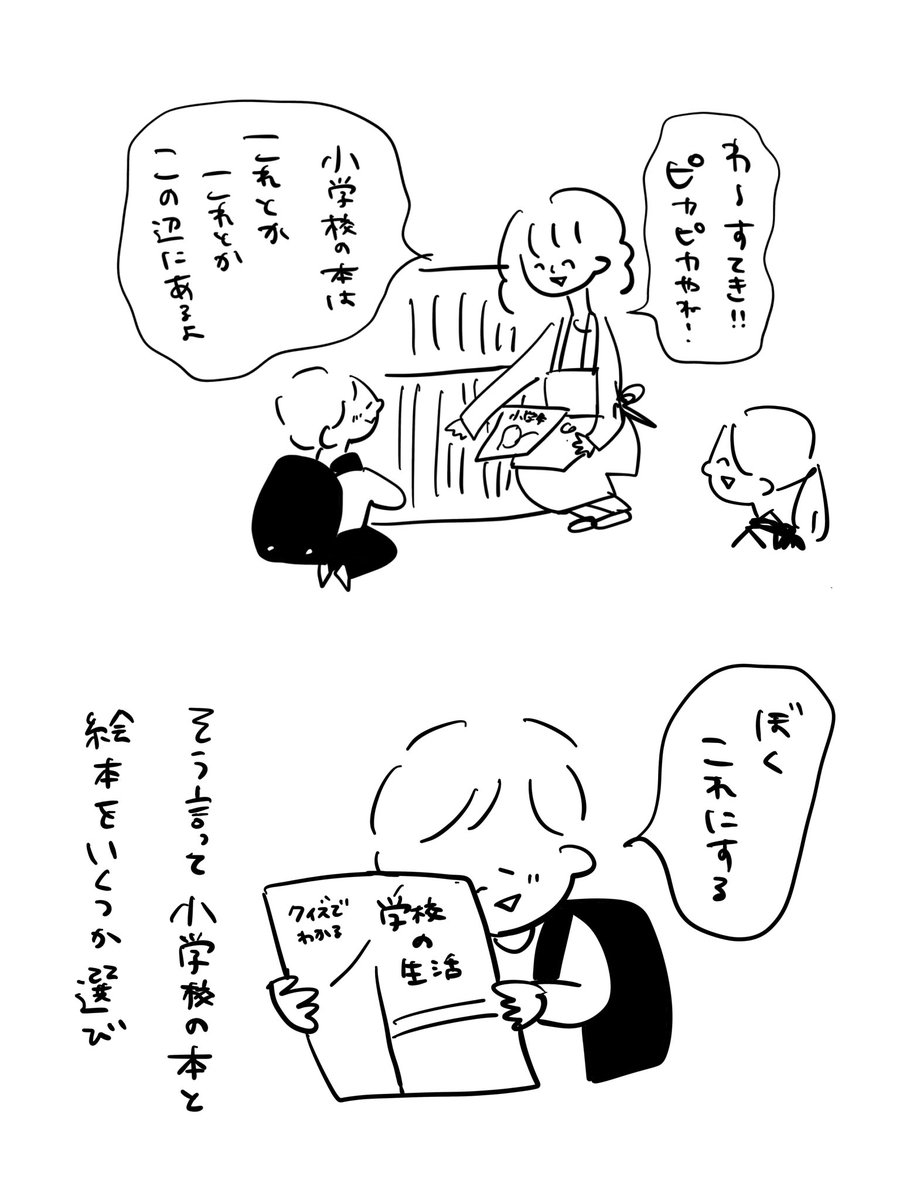 わ〜すてき!!
ピカピカやね!
小学校の本は
これとか
これとか
この辺にあるよ
小学校
ぼく
これにする
クイズで
わかる
学校
の
生活
そう言って 小学校の本と
絵本をいくつか選び